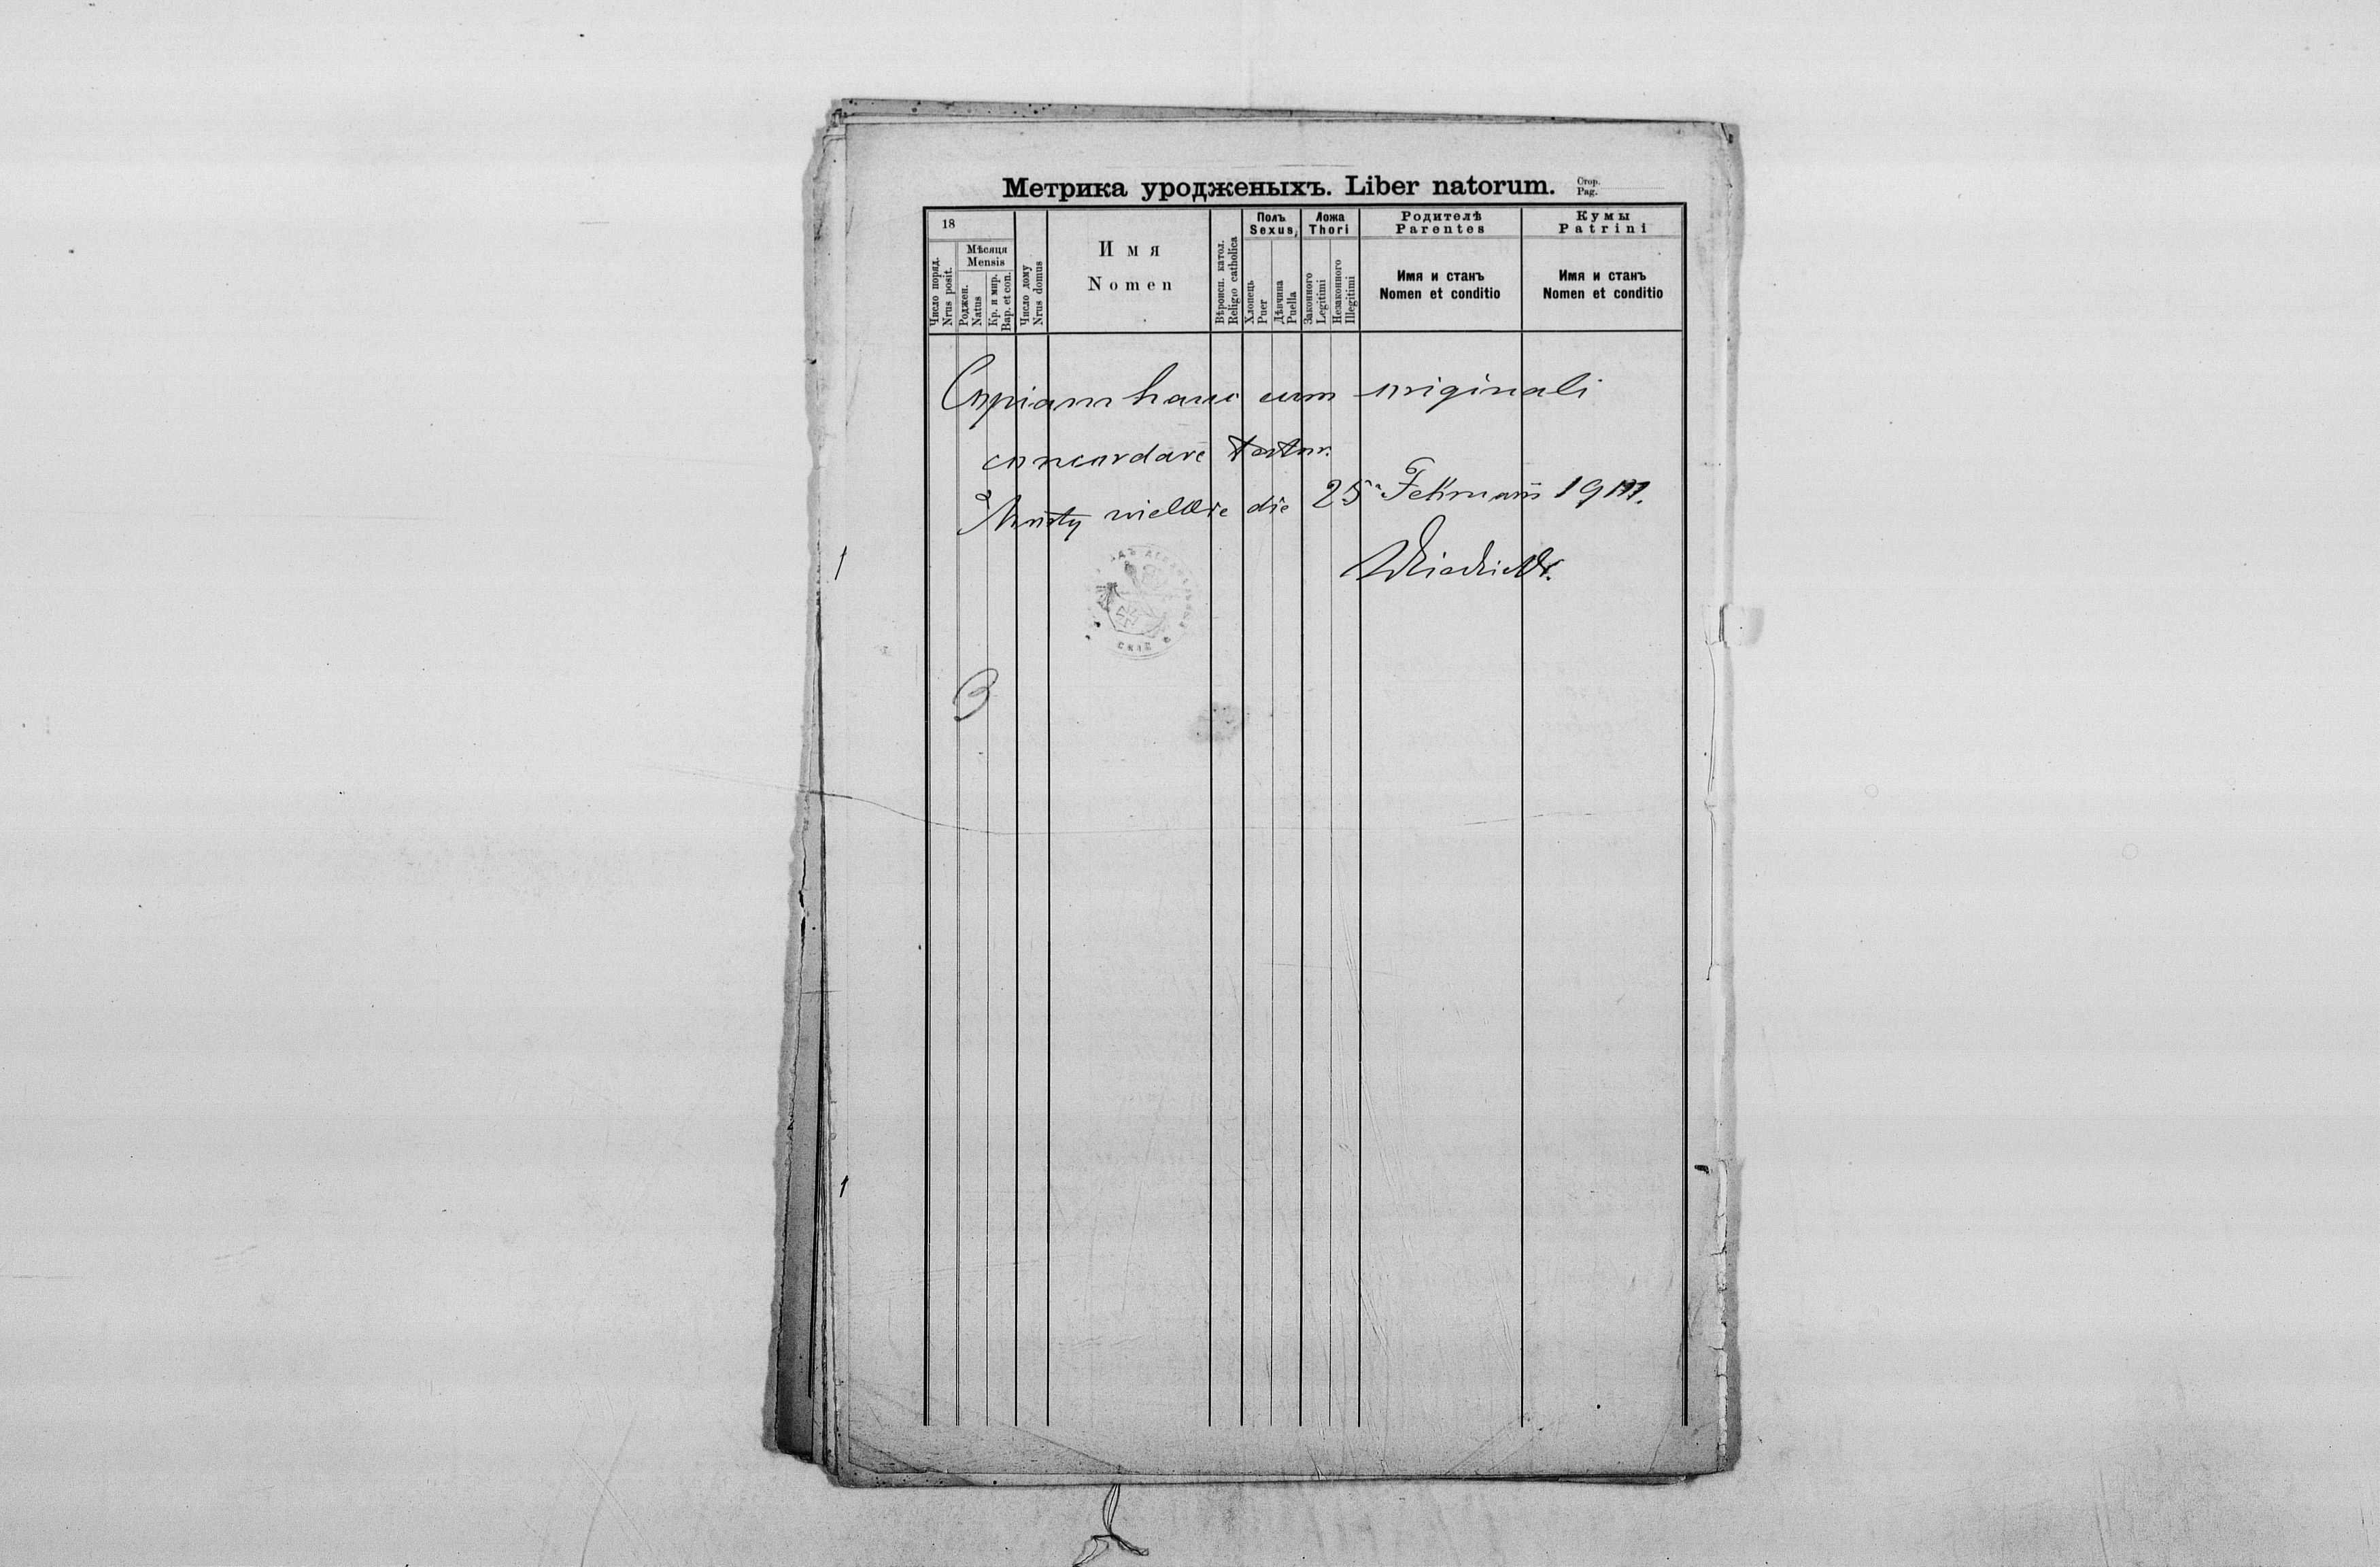 Метрика уродженыхъ. Liber natorum.
Стор.
Pag.
18
Число поряд.
Nrus posit.
Мѣсяця
Mensis
Роджен.
Natus
Кр. и мир.
Bap. et con.
Число дому
Nrus domus
Имя
Nomen
Вѣроисп. катол.
Religio catholica
Полъ
Sexus
Хлопець
Puer
Дѣвчина
Puella
Ложа
Thori
Законного
Legitimi
Незаконного
Illegitimi
Родителѣ
Parentes
Имя и станъ
Nomen et conditio
Кумы
Patrini
Имя и станъ
Nomen et conditio
Copiam hanc cum originali
concordare testor.
Mosty wielkie die 25 Februarii
СКІЙ